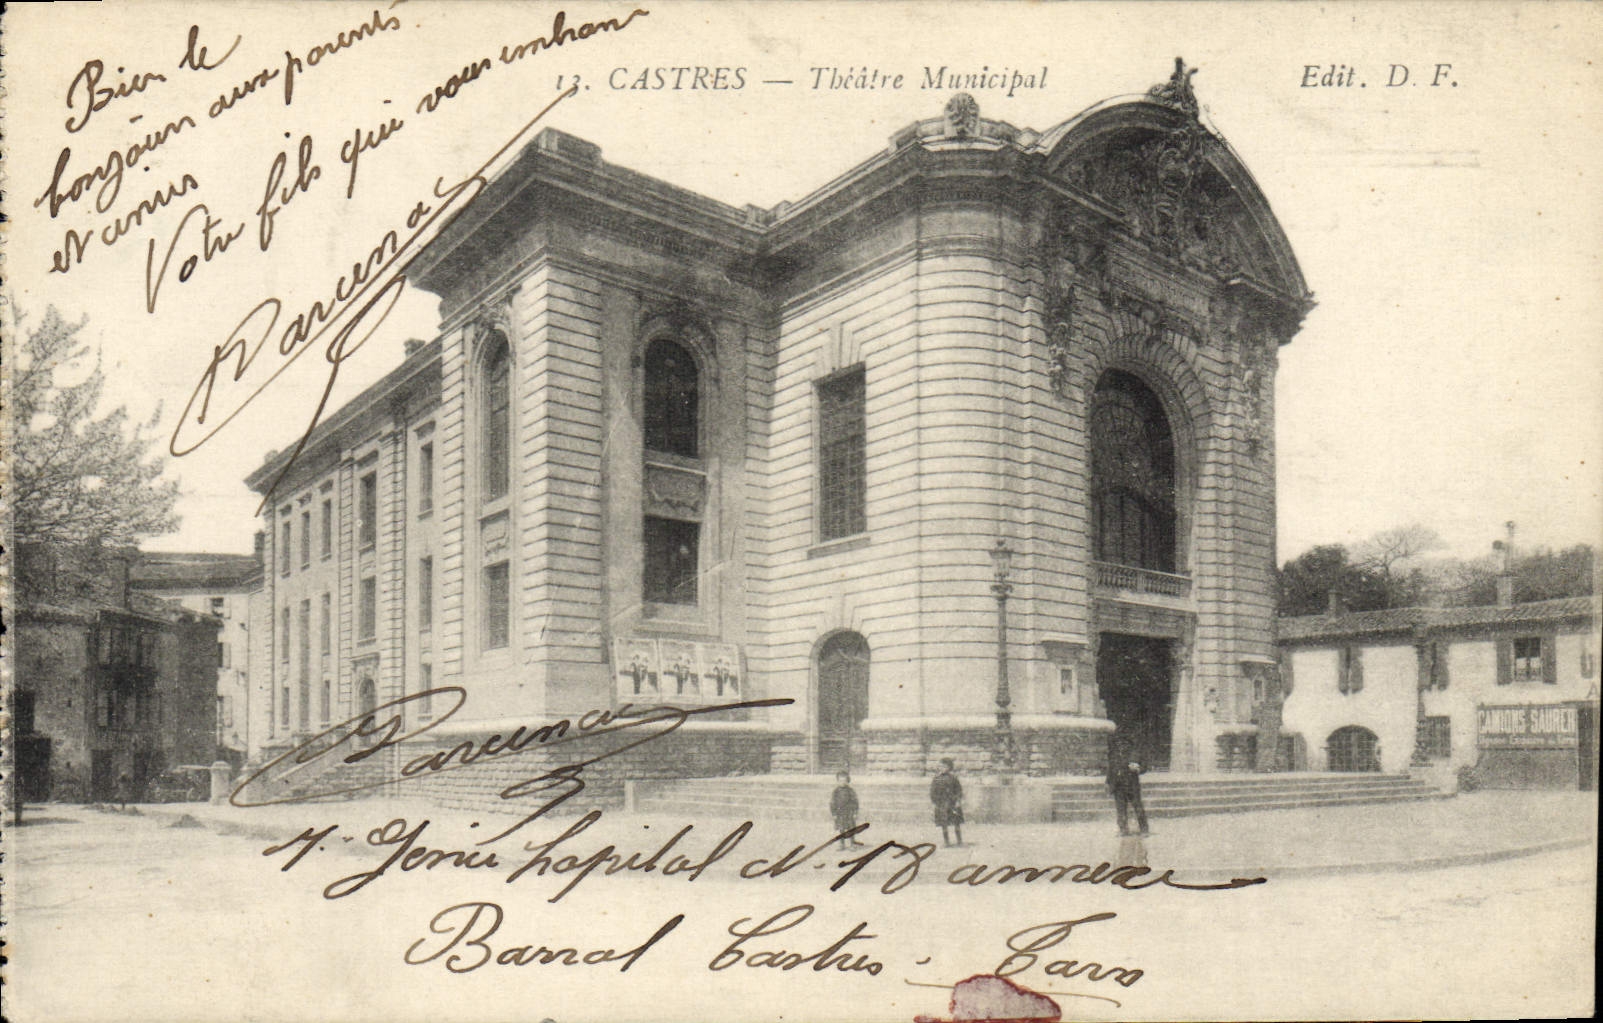 Bien le
bonjour aux parents
et amis
Votre fils qui vous embrasse
Parcenac
13. CASTRES — Théâtre Municipal
Edit. D. F.
CAMIONS SAURER
Parcenac
7.e Genie hopital N. 18 annexe
Barral Castres. Tarn